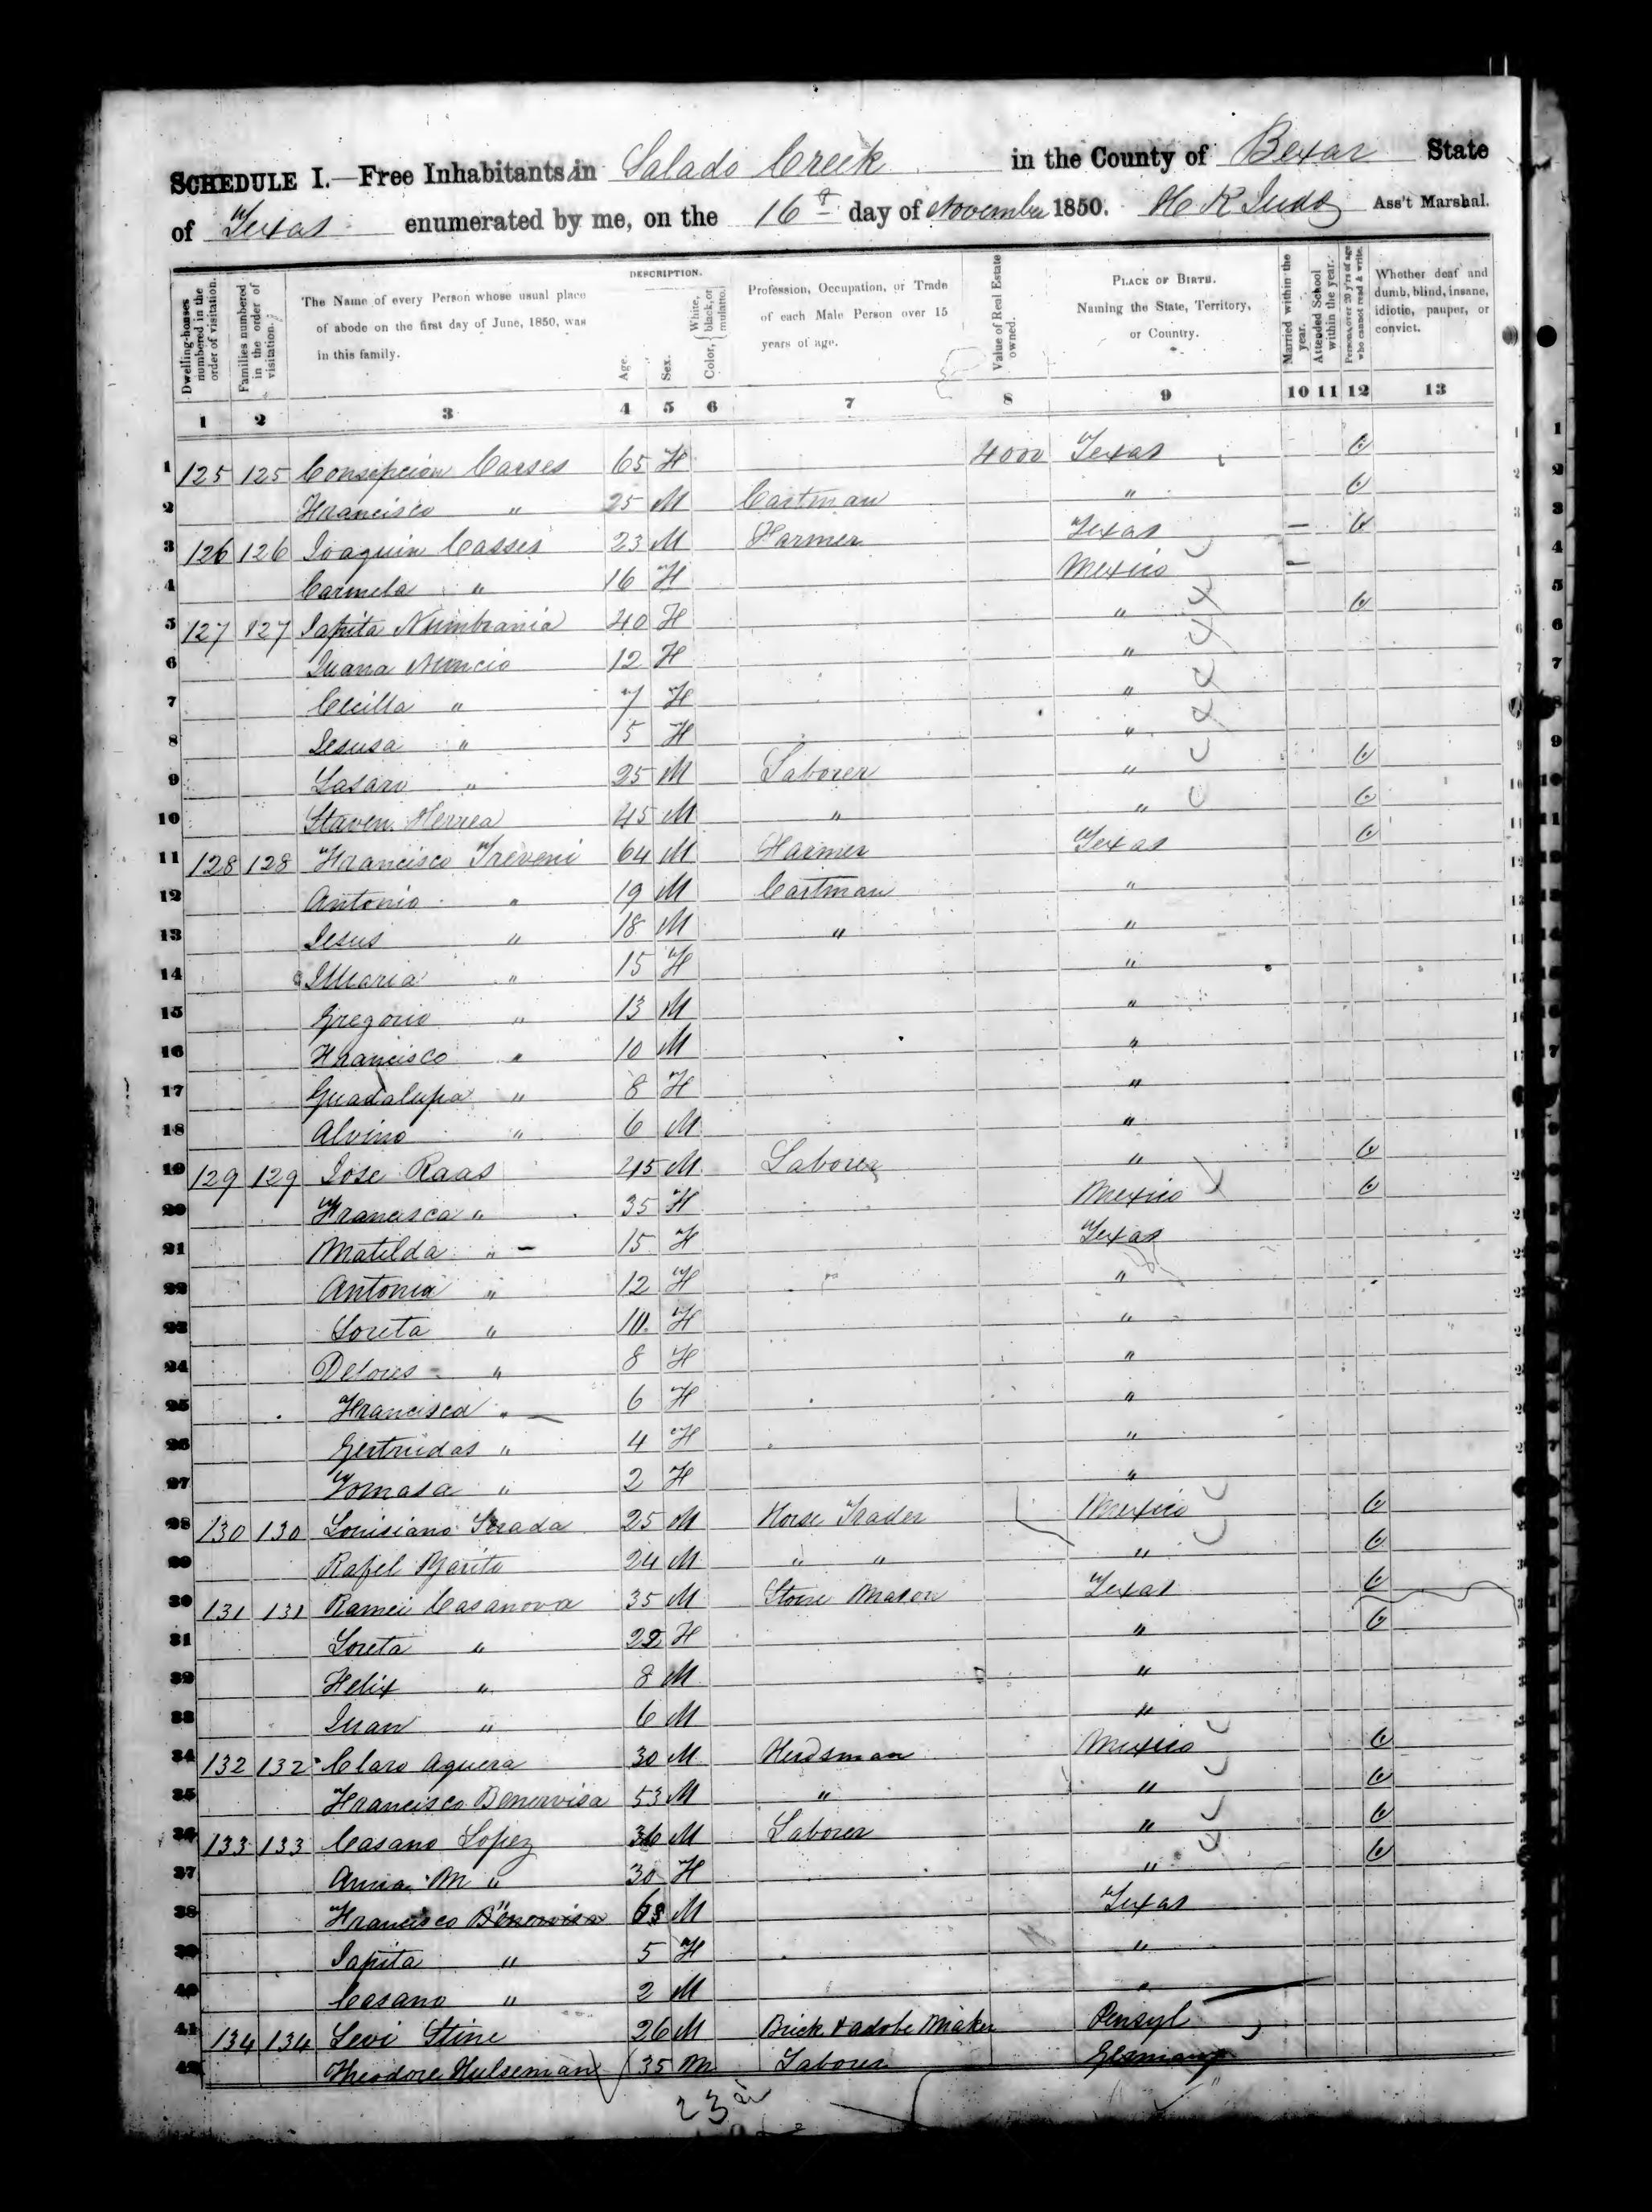 SCHEDULE I.—Free Inhabitants in Salado Creek in the County of Bexar State
of Texas enumerated by me, on the 16th day of November 1850. H K Judd Ass't Marshal.
Dwelling-houses numbered in the order of visitation.
Families numbered in the order of visitation.
The Name of every Person whose usual place of abode on the first day of June, 1850, was in this family.
DESCRIPTION.
Age.
Sex.
Color, { White, black, or mulatto.
Profession, Occupation, or Trade of each Male Person over 15 years of age.
Value of Real Estate owned.
PLACE OF BIRTH. Naming the State, Territory, or Country.
Married within the year.
Attended School within the year.
Persons over 20 y'rs of age who cannot read & write.
Whether deaf and dumb, blind, insane, idiotic, pauper, or convict.
1 2 3 4 5 6 7 8 9 10 11 12 13
1 125 125 Consepcion Casses 65 F 4000 Texas
2 Francisco " 25 M Cartman "
3 126 126 Joaquin Casses 23 M Farmer Texas –
4 Carmela " 16 F Mexico –
5 127 127 Japita Numbrania 40 F "
6 Juana Nuncio 12 F "
7 Cecilla " 7 F "
8 Jesusa " 5 F "
9 Lasaro " 25 M Laborer "
10 Staven Herrea 45 M " "
11 128 128 Francisco Treveni 64 M Farmer Texas
12 Antonio " 19 M Cartman "
13 Jesus " 18 M " "
14 Maria " 15 F "
15 Gregorio " 13 M "
16 Francisco " 10 M "
17 Guadalupa " 8 F "
18 Alvino " 6 M "
19 129 129 Jose Raas 45 M Laborer "
20 Francisca " 35 F Mexico
21 Matilda " 15 F Texas
22 Antonia " 12 F "
23 Loreta " 10 F "
24 Delores " 8 F "
25 Francisca " 6 F "
26 Gertrudas " 4 F "
27 Tomasa " 2 F "
28 130 130 Louisiano 25 M Horse Trader Mexico
29 Rafel 24 M " " "
30 131 131 Ramei Casanova 35 M Stone Mason Texas
31 Loreta " 22 F "
32 Felix " 8 M "
33 Juan " 6 M "
34 132 132 Claro Aguera 30 M Herdsman Mexico
35 Francisco Benervisa 53 M " "
36 133 133 Casano Lopez 36 M Laborer "
37 Anna M " 30 F "
38 Francisco " M Texas
39 Japita " 5 F "
40 Casano " 2 M "
41 134 134 Levi Stine 26 M Brick & adobe Maker Pensyl
42 Theodore Hulseman 35 M Laborer Germany
23